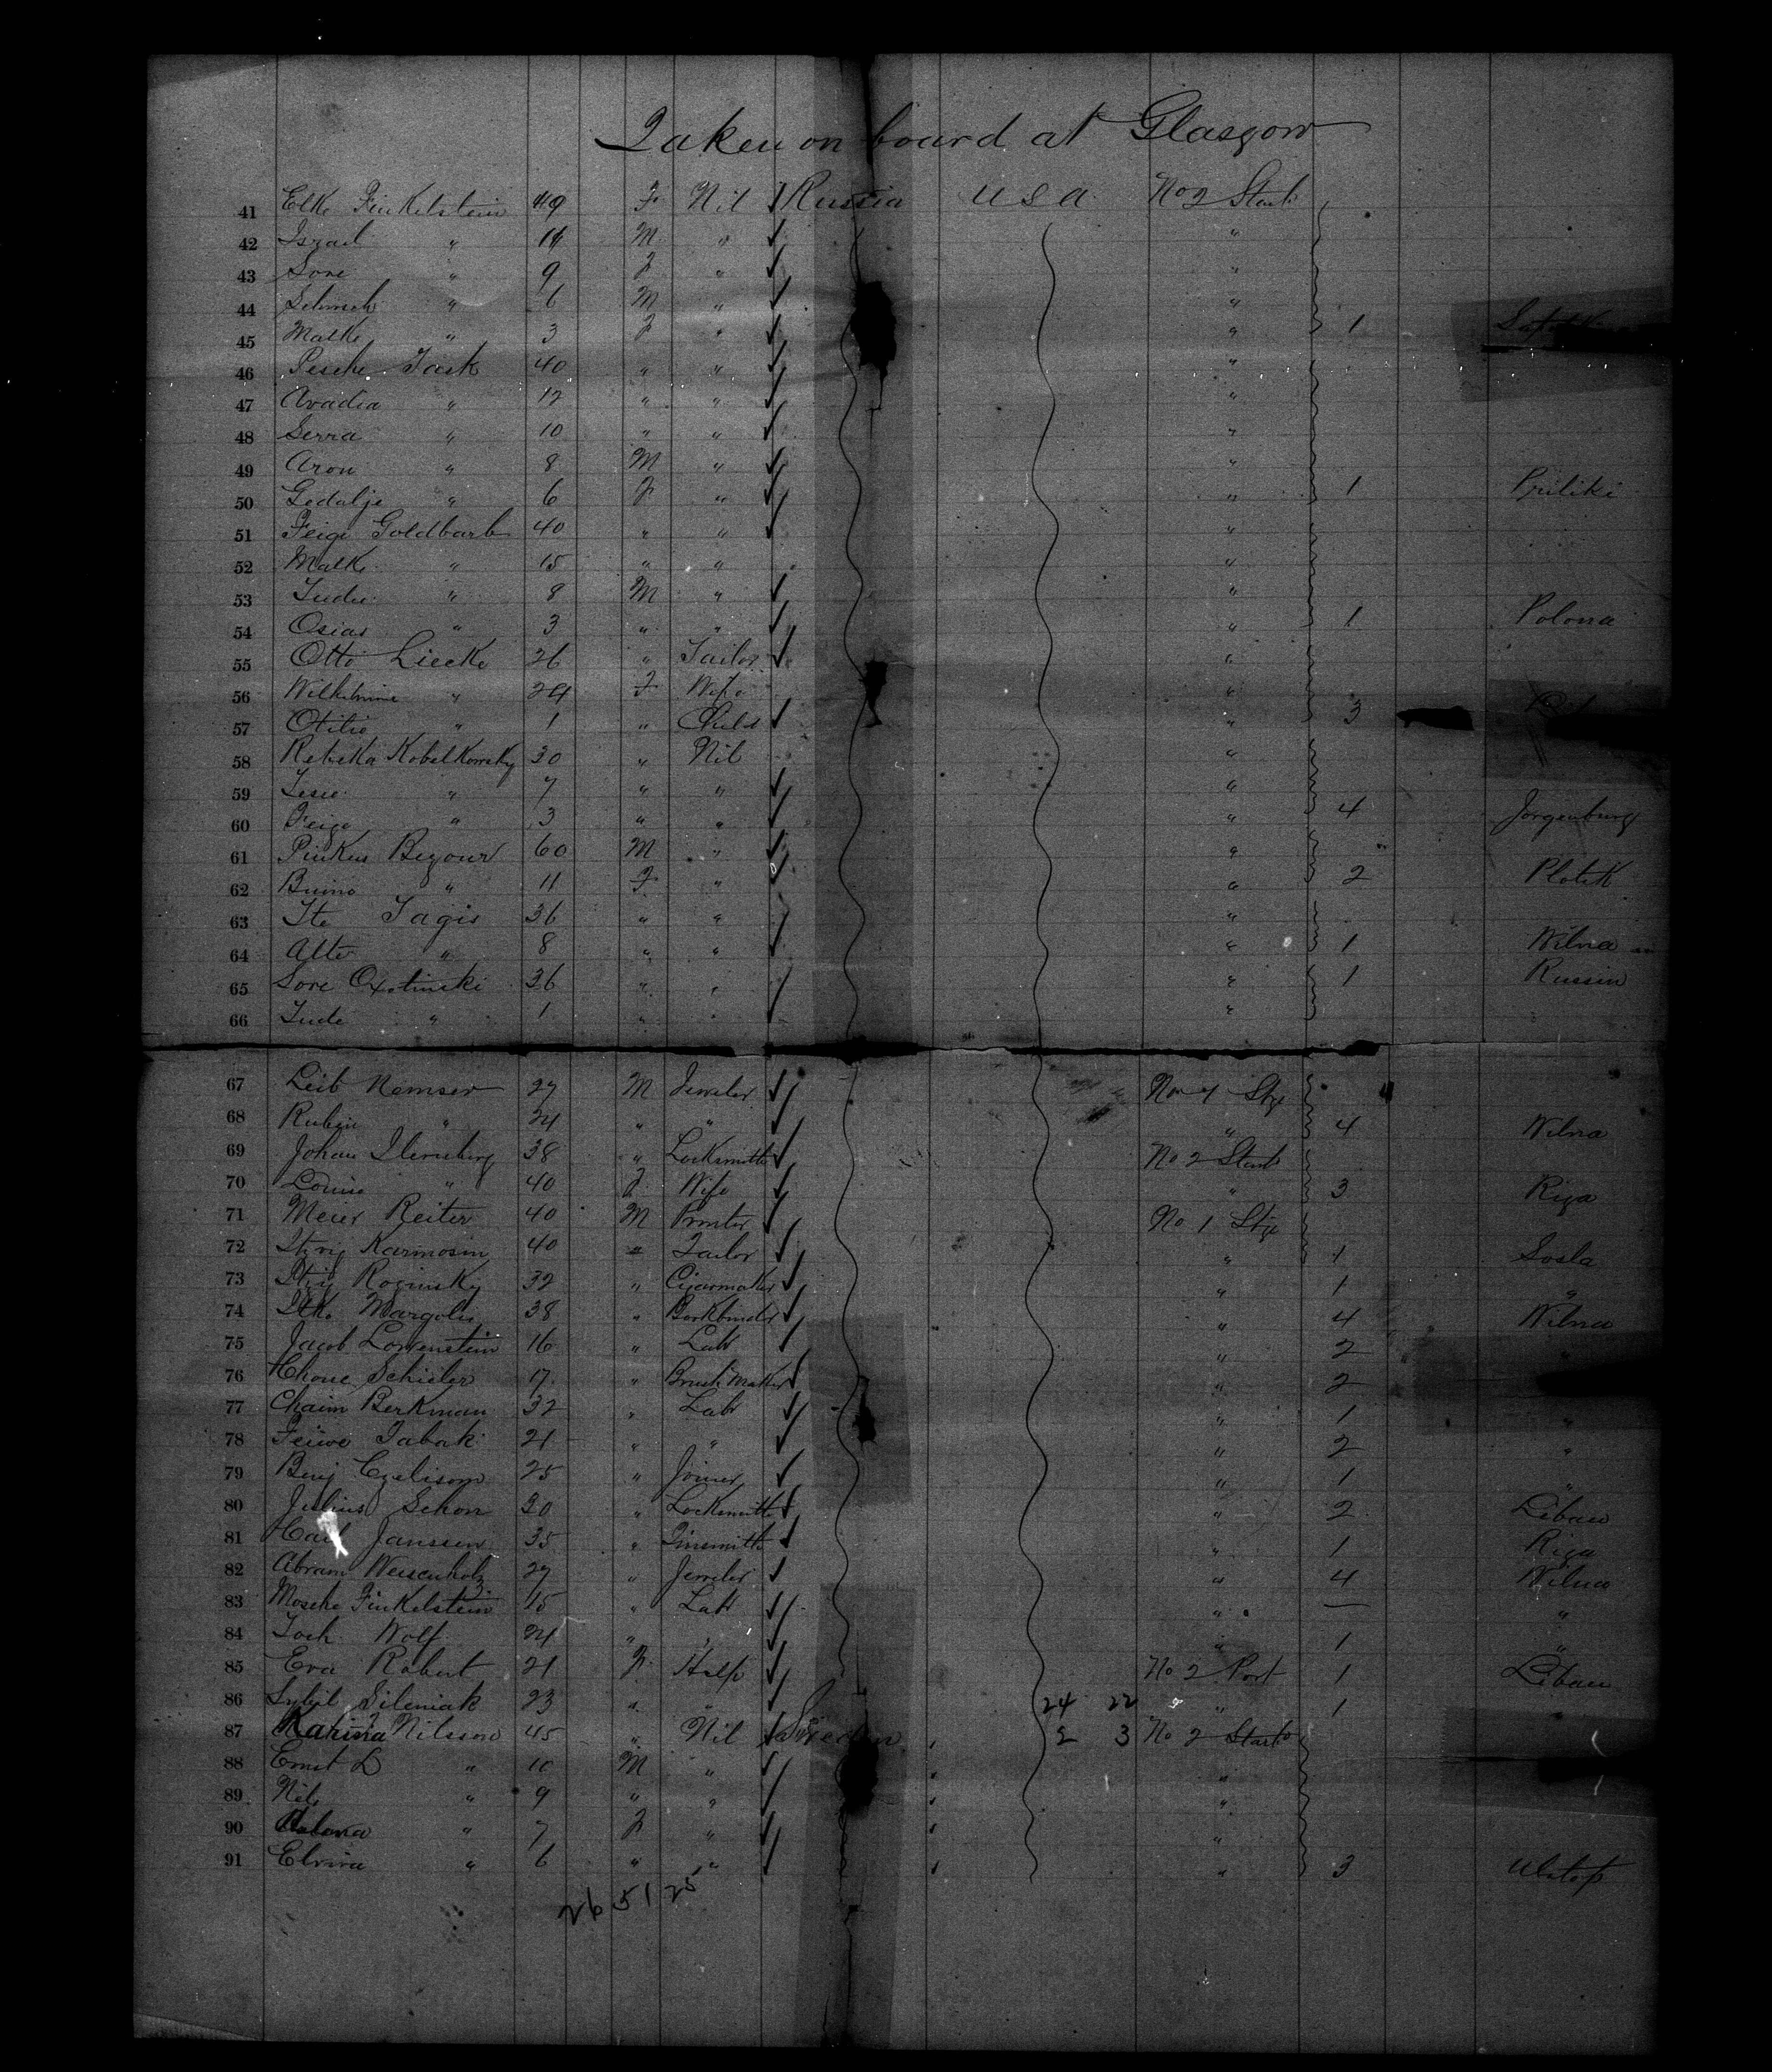 Taken on board at Glasgow
41 Elke Finkelstein 49 F Nil Russia U S A No 2 Starb
42 Israel " 14 M " "
43 Sore " 9 F " "
44 " 6 M " "
45 Malke " 3 F " " 1
46 Pesche Task 40 " " "
47 Avadia " 12 " " "
48 Serra " 10 " " "
49 Aron " 8 M " "
50 Gedalje " 6 F " " 1 Priliki
51 Feige Goldbarb 40 " " "
52 Malke " 15 " " "
53 Jude " 8 M " "
54 Osias " 3 " " " 1 Polona
55 Otto Liecke 26 " Tailor "
56 Wilhelmine " 24 F Wife "
57 Otilie " 1 " Child " 3
58 Rebeka Kobelkowsky 30 " Nil "
59 " 7 " " "
60 Feige " 3 " " " 4 Jorgenburg
61 Pinkus Begour 60 M " "
62 " 11 F " " 2 Plotzk
63 Ite Tagis 36 " " "
64 Alte " 8 " " " 1 Wilna
65 Sore 36 " " " 1 Russin
66 Jude " 1 " " "
67 Leib Nemser 27 M Jeweler No 1 Stge
68 Rubin " 24 " " " 4 Wilna
69 Johan 38 " Locksmith No 2 Starb
70 Louise " 40 F Wife " 3 Riga
71 Meier Reiter 40 M Printer No 1 Stge
72 Itzig Karmosin 40 " Tailor " 1 Sosla
73 Itzig Roginsky 32 " Cigarmaker " 1 "
74 Itko Margolis 38 " Bookbinder " 4 Wilna
75 Jacob Lowenstein 16 " Labr " 2 "
76 Chone Schieler 17 " Brush Maker " 2
77 Chaim Berkman 32 " Labr " 1 "
78 Feiwe Tabak 21 " " " 2 "
79 Benj 25 " Joiner " 1 "
80 Julius Schon 30 " Locksmith " 2 Libau
81 Carl Janssen 35 " Tinsmith " 1 Riga
82 Abram Weisenholz 27 " Jeweler " 4 Wilna
83 Mosche Finkelstein 15 " Labr " — "
84 Wolf 24 " " " 1 "
85 Eva Robert 21 F Help No 2 Port 1 Libau
86 Sileniak 23 " " 24 22 " 1 "
87 Karina Nilsson 45 " Nil Sweden 2 3 No 2 Starb
88 Ernst L " 10 M " "
89 Nils " 9 " " "
90 " 7 F " "
91 Elvira " 6 " " " 3
26 51 25